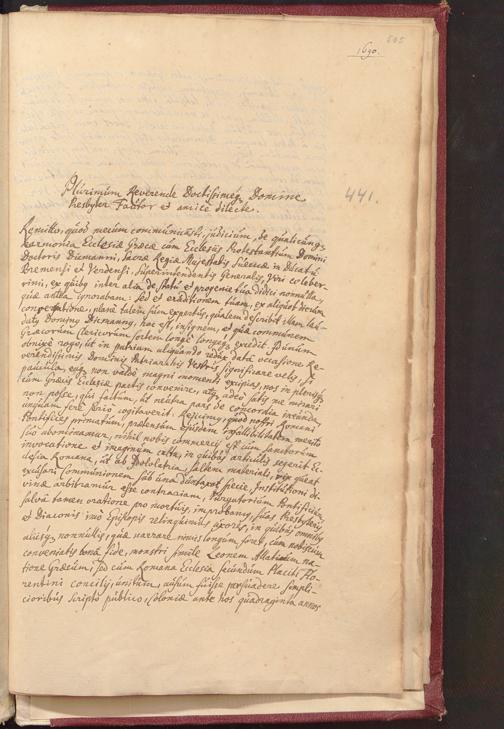 505
1690.
441.
Plurimùm Reverende Doctissimeq; Domine
Presbyter Fautor et amice dilecte.
Remitto, quod mecum communicasti, judicium, de qualicunq;
harmonia Ecclesiæ Græcæ cum Ecclesiis Protestantium Domini
Doctoris Diecmanni, Sacræ Regiæ Majestatis Sueciæ in Ducatu
Bremensi et Verdensi, Superintendentis Generalis, Viri celeber-
rimi, ex quibus inter alia de statu et progenie tua didici nonnulla,
quæ antea ignorabam: sed et eruditionem tuam, ex aliquot dierum
conversatione, planè talem sum expertus, qualem describit illam lau-
datus Dominus Diecmannus, hoc est, insignem, et quæ communem
Græcorum Clericorum sortem longè excedit.
obnixè rogo, ut in patriam aliquando redux data occasione Re-
verendissimis Dominis Patriarchis Vestris significare velis,
paucula, eaq; non valdè magni momenti excipias, nos in plerisq;
cum Græcis Ecclesiæ partis convenire, atq; adeò satis me mirari
non posse, qui factum, ut neutra pars de concordia ineunda,
unquam ferè seriò cogitaverit. Rejicimus, quod nostri, Romani
Pontificis primatum, prætensam ejusdem infallibilitatem meritò
suo abominamur, nihil nobis commercii est cum Sanctorum
invocatione et imaginum cultu, in quibus articulis segerit Ec-
clesia Romana, ut ab Idololatria saltem materiali, vix queat
excusari Communionem sub una duntaxat specie, Institutioni di-
vinæ arbitramur esse contrariam, Purgatorium Pontificium,
salvâ tamen oratione pro mortuis, improbamus, suas Presbyteris
et Diaconis imò Episcopis relinquimus uxores, in quibus omnibus
aliisq; nonnullis, quæ narrare nimis longum foret, cum nobiscum
conveniatis bona fide, monstri simile Leonem Allatium na-
tione Græcum, sed cum Romana Ecclesia secundum Placita Flo-
rentini Concilii, unitum, ausum fuisse persuadere simpli-
cioribus scripto publico, Coloniæ ante hos quadraginta annos